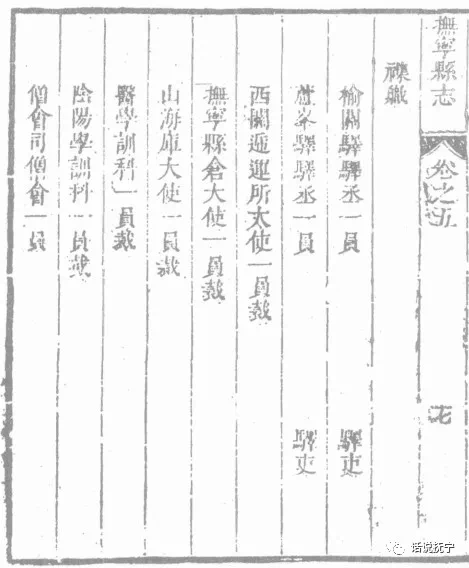 撫寧縣志
卷之五
襍職
榆關驛驛丞一員 驛吏
蘆峯驛驛丞一員 驛吏
西關遞運所大使一員裁
撫寧縣倉大使一員裁
山海庫大使一員裁
醫學訓科一員裁
陰陽學訓科一員裁
僧會司僧會一員
话说抚宁